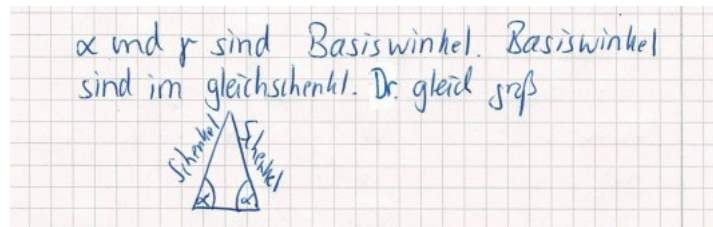 α und γ sind Basiswinkel. Basiswinkel
sind im gleichschenkl. Dr. gleich groß
Schenkel
Schenkel
α
α